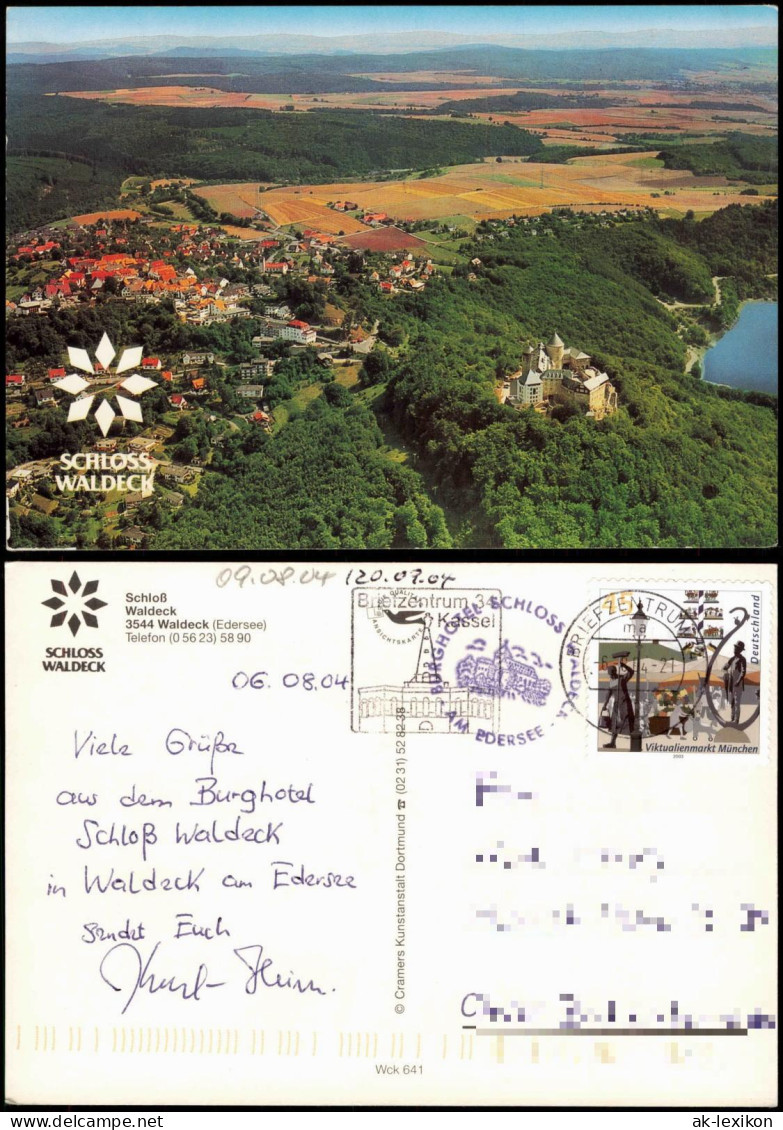 SCHLOSS
WALDECK
SCHLOSS
WALDECK
Schloß
Waldeck
3544 Waldeck (Edersee)
Telefon (0 56 23) 58 90
09.08.04
120.09.04
06.08.04
Briefzentrum 34
Kassel
BURGHOTEL SCHLOSS WALDECK
AM EDERSEE
BRIEFZENTRUM
ma
45
Deutschland
Viktualienmarkt München
2003
Viele Grüße
aus dem Burghotel
Schloß Waldeck
in Waldeck am Edersee
sendet Euch
Karl-Heinz
© Cramers Kunstanstalt Dortmund ☎ (02 31) 52 82 38
Wck 641
ak-lexikon